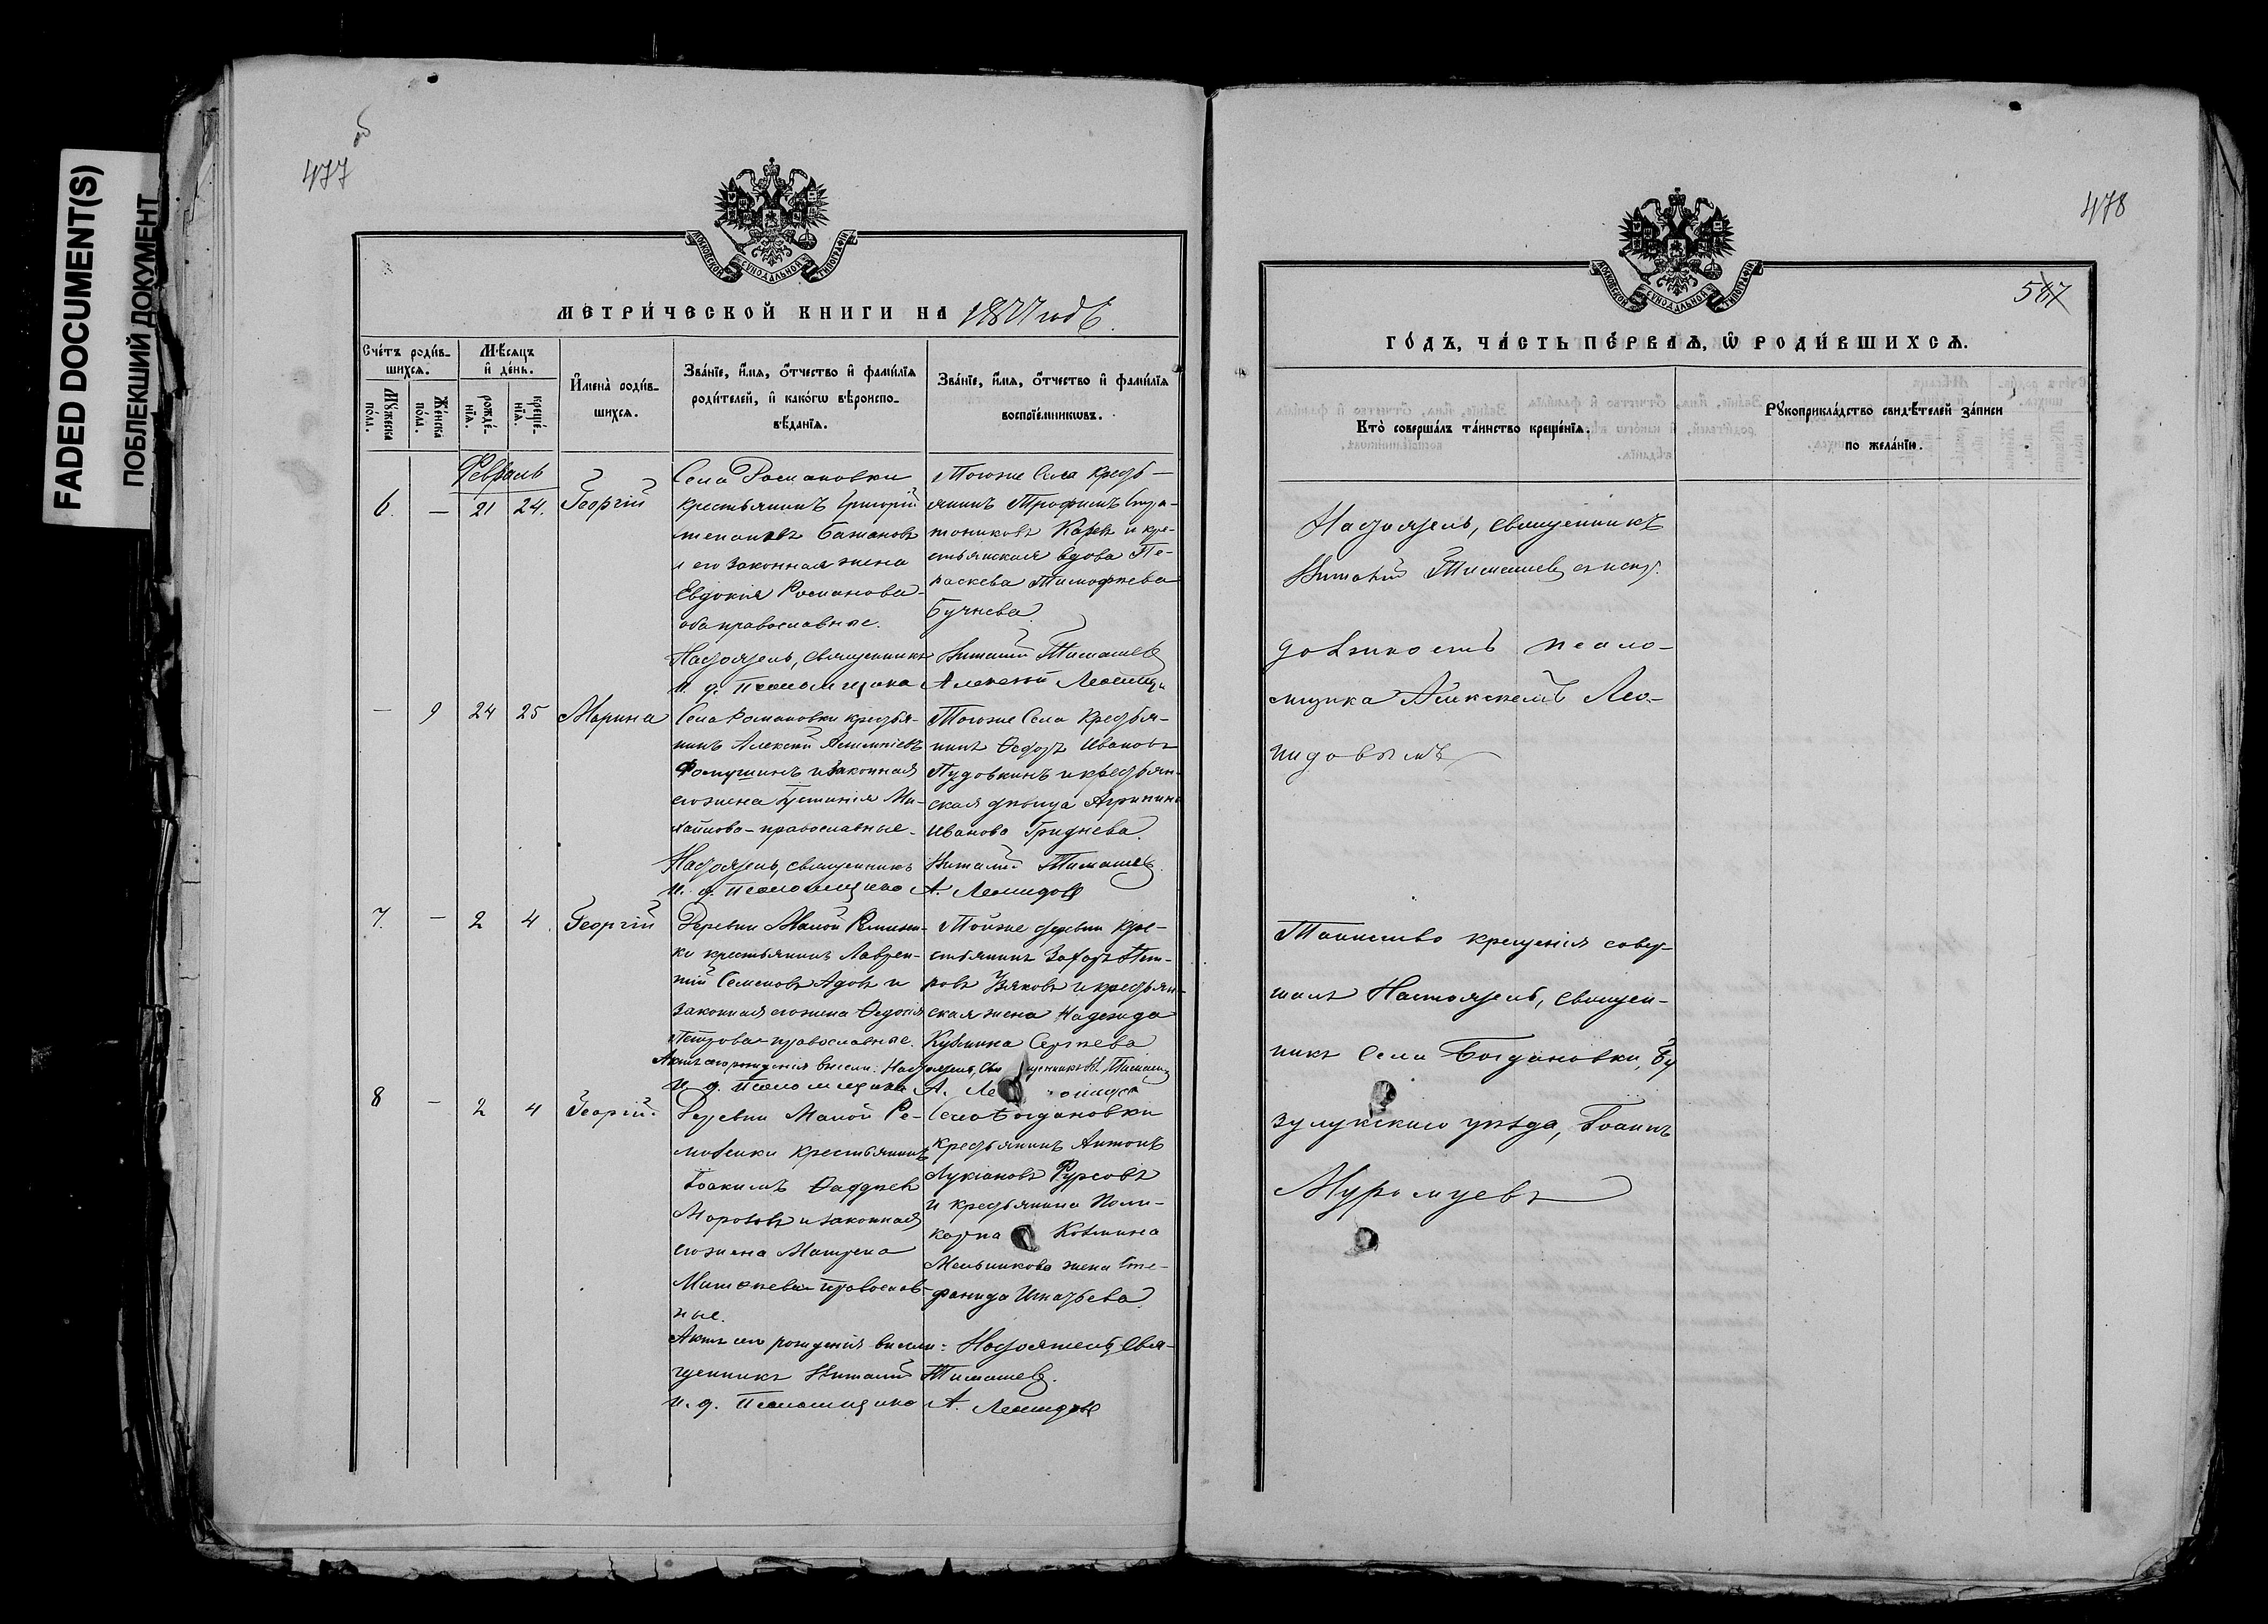 FADED DOCUMENT(S)
ПОБЛЕКШИЙ ДОКУМЕНТ
477 об
МОСКОВСКОЙ СѴНОДАЛЬНОЙ ТИПОГРАФІИ
МЕТРИ́ЧЕСКОЙ КНИГИ НА 1877 годъ.
Сче́тъ роди́в-
шихсѧ.
Мꙋ́жеска по́ла.
Же́нска по́ла.
Мѣ́сѧцъ и҆ де́нь.
рожде́-
нїѧ.
креще́-
нїѧ.
И҆мена̀ роди́в-
шихсѧ.
Зва́нїе, и҆́мѧ, ѻ҆́тчество и҆ фами́лїѧ
роди́телей, и҆ како́гѡ вѣроиспо-
вѣ́данїѧ.
Зва́нїе, и҆́мѧ, ѻ҆́тчество и҆ фами́лїѧ
воспрїе́мникѡвъ.
Февраль
6. — 21 24. Георгій
Села Романовки
крестьянинъ Григорій
Бажановъ
и его законная жена
Евдокія Романова
оба православные.
Тогоже Села Кресть-
янинъ Трофимъ
и кре-
стьянская вдова Па-
раскева Тимофеева
Бучнева
Настоятель, священникъ Виталій Тимашев
И. д. Псаломщика Алексѣй Леонидов
— 9 24 25 Марина
Села Романовки крестья-
нинъ Алексѣй
Фомушинъ и законная
его жена Іустинія Ми-
хайлова - православные.
Тогоже Села Крестья-
нинъ Ѳедоръ Ивановъ
Пудовкинъ и крестьян-
ская дѣвица Агрипина
Иванова Гриднева.
Настоятель, священникъ Виталій Тимашев.
И. д. Псаломщика А. Леонидов
7. — 2 4. Георгій
Деревни Малой Ремизен-
ки крестьянинъ Лаврен-
тій Семеновъ Адовъ и
законная его жена Ѳедосія
Петрова православные.
Тойже деревни кре-
стьянинъ Захаръ Пет-
ровъ и крестьян-
ская жена Надежда
Кузьмина Сергѣева
Актъ его рожденія внесли: Настоятель, Священникъ В. Тимашев
И. д. Псаломщика А. Леонидов
8 — 2 4 Георгій.
Деревни Малой Ре-
мизенки крестьянинъ
Іоакимъ Ѳаддѣев
Морозовъ и законная
его жена Матрена
Матѳеева православ-
ные.
Села Богдановки
Крестьянинъ Антонъ
Лукіановъ Фурсовъ
и крестьянина Поли-
карпа Козмина
Мельникова жена Сте-
фанида Игнатьева.
Актъ его рожденія внесли: Настоятель, Свя-
щенникъ Виталій Тимашев.
И. д. Псаломщика А. Леонидов
478
587
МОСКОВСКОЙ СѴНОДАЛЬНОЙ ТИПОГРАФІИ
ГО́ДЪ, ЧА́СТЬ ПЕ́РВАѦ, Ѡ҆ РОДИ́ВШИХСѦ.
Кто̀ соверша́лъ та́инство креще́нїѧ.
Рꙋкоприкла́дство свидѣ́телей за́писи
по жела́нїю.
Настоятель, священникъ
Виталій Тимашев съ испр.
должность псало-
мщика Алексѣемъ Лео-
нидовымъ
Таинство крещенія совер-
шалъ Настоятель, священ-
никъ Села Богдановки, Бу
зулукскаго уѣзда, Іоаннъ
Муромцевъ